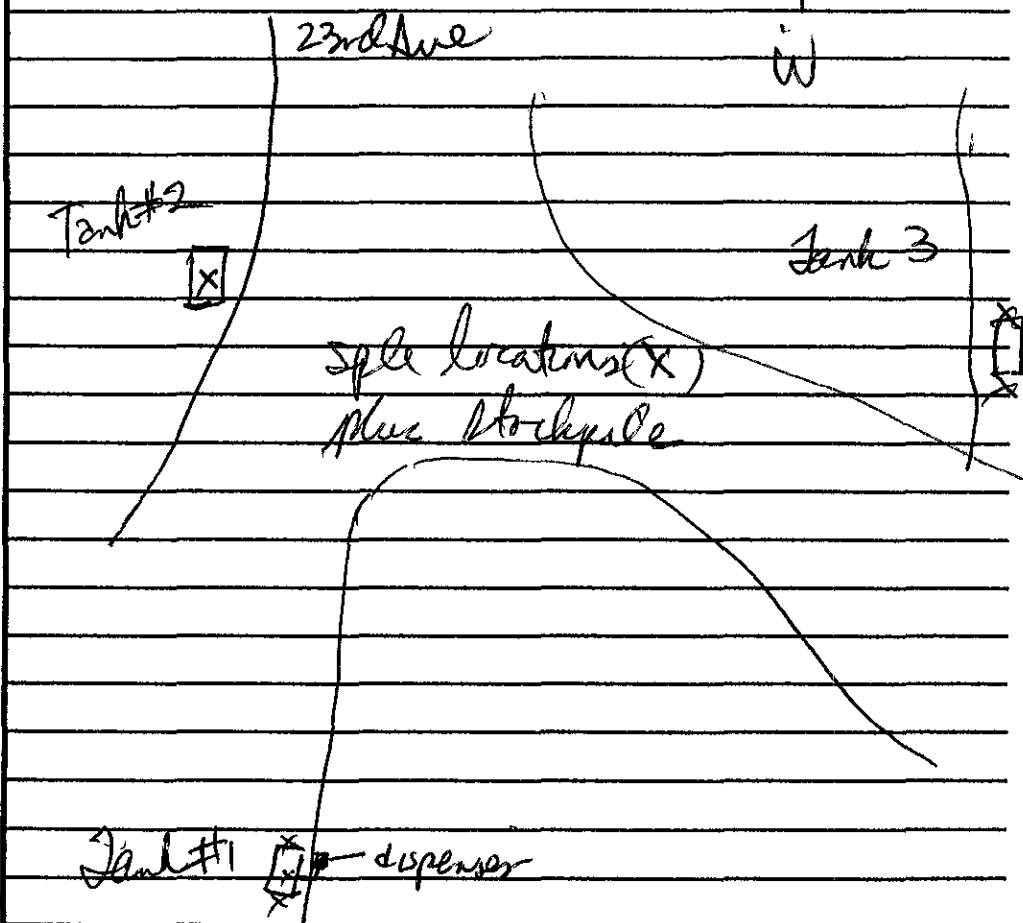 23rd Ave
Tank #2
X
Tank 3
X
X
sple locations (X)
plus stockpile
Tank #1
X
X
X
dispenser